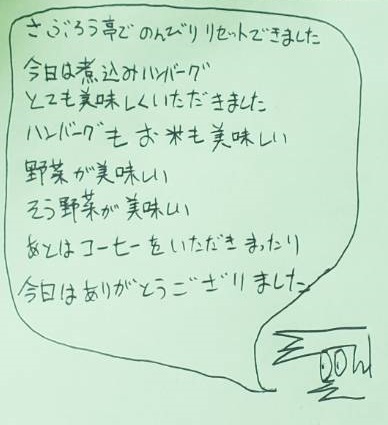 さぶろう亭でのんびりリセットできました
今日は煮込みハンバーグ
とても美味しくいただきました
ハンバーグもお米も美味しい
野菜が美味しい
そう野菜が美味しい
あとはコーヒーをいただきまったり
今日はありがとうござりました